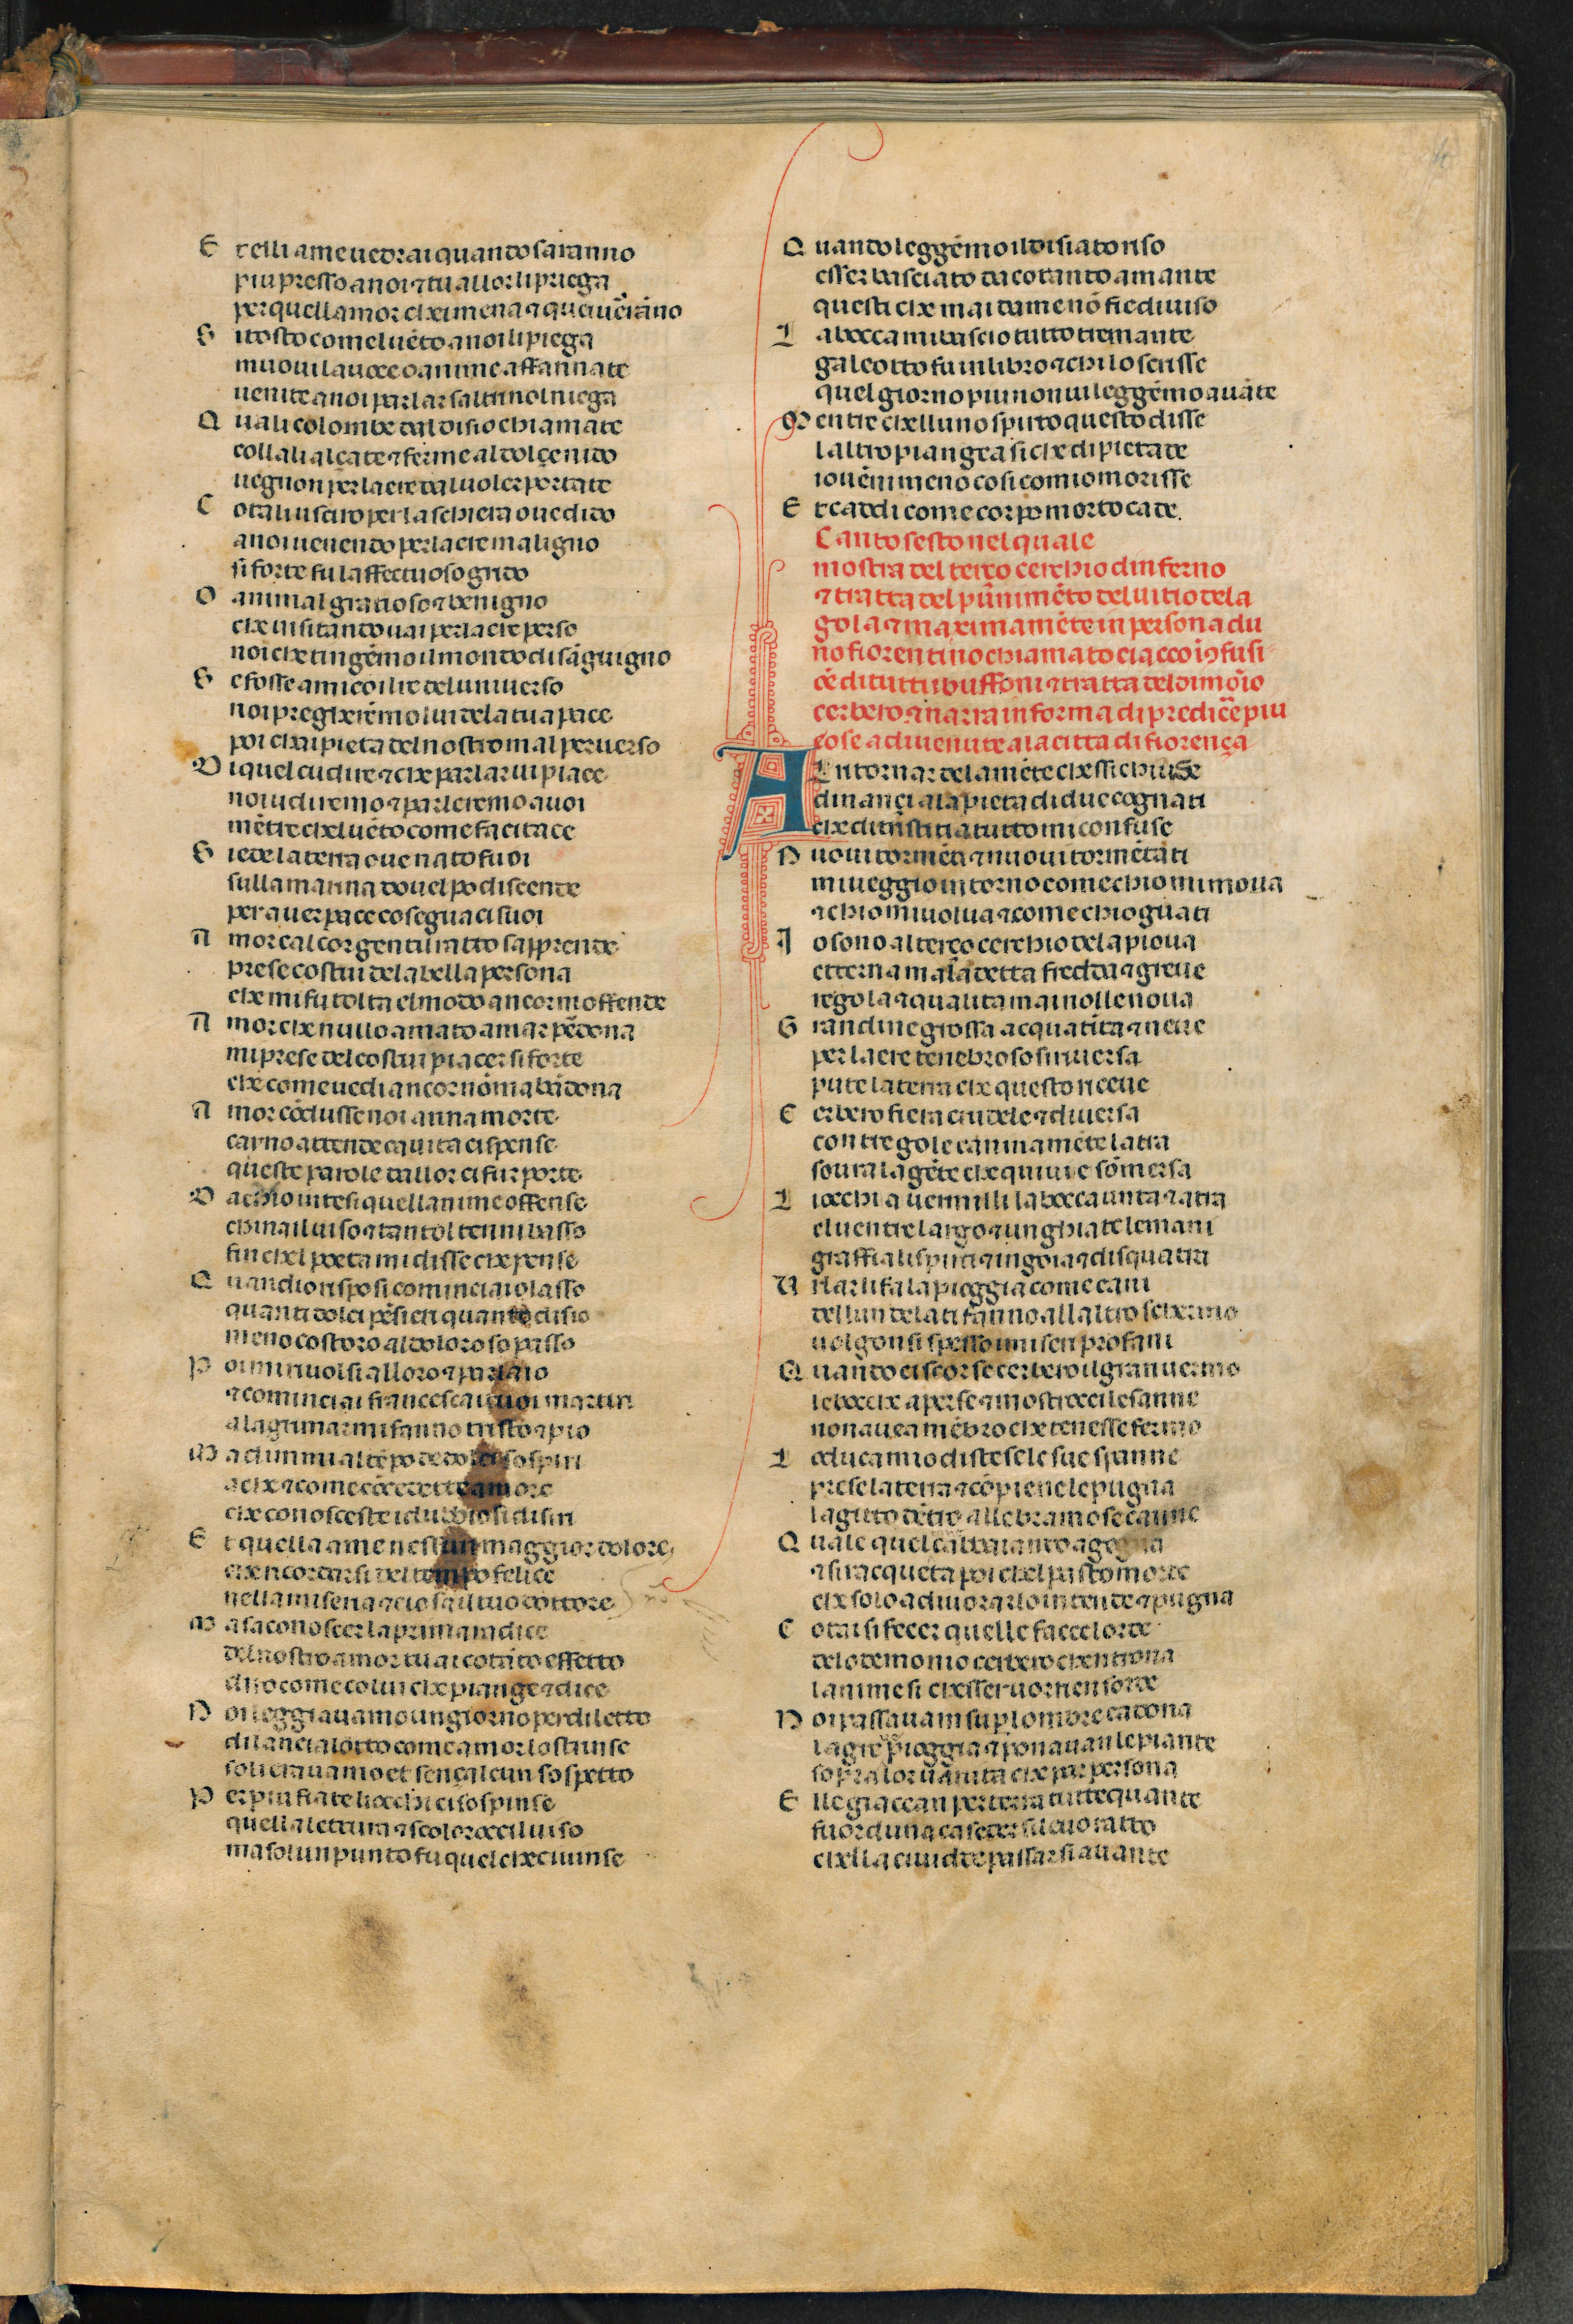 E t elli a me vedrai quando saranno
piu presso a noi ⁊ tu allor li priega
per quell amor che i mena ⁊ quei uerãno
S i tosto come l uẽto a noi li piega
muoui la uoce o anime affannate
uenite a noi parlar s altri nol niega
Q uali colombe dal disio chiamate
coll ali alçate ⁊ ferme al dolçe nido
uegnon per l aere dal uoler portate
C otali usciro per la schiera oue dido
a noi uenendo per l aere maligno
si forte fu l affectuoso grido
O animal gratioso ⁊ benigno
che uisitando uai per l aere perso
noi che tingẽmo il mondo di sãguigno
S e fosse amico il re del uniuerso
noi pregherẽmo lui de la tua pace
poi ch ai pieta del nostro mal peruerso
D i quel c udire ⁊ che parlar ui piace
noi udiremo ⁊ parleremo a uoi
mẽtre che l uẽto come fa ci tace
S iede la terra oue nato fui
sulla marina doue l po discende
per auer pace co seguaci suoi
A mor c al cor gentil ratto s apprende
prese costui de la bella persona
che mi fu tolta e l modo ancor m offende
A mor che nullo amato amar pdona
mi prese del costui piacer si forte
che come uedi ancor nõ m abãdona
A mor cõdusse noi ad una morte
cayno attende ca uita ci spense
queste parole da llor ci fur porte
D a ch io intesi quell anime offense
chinai l uiso ⁊ tanto l tenni basso
fin che l poeta mi disse che pense
Q uand io risposi cominciai o lasso
quanti dolci pẽsieri quanto disio
meno costoro al doloroso passo
P oi mi riuolsi a lloro ⁊ parla io
⁊ cominciai francesca i tuoi martiri
a lagrimar mi fanno tristo ⁊ pio
M a dimmi al tẽpo de dolci sospiri
a che ⁊ come cõcedette amore
che conosceste i dubbiosi disiri
E t quella a me nessun maggior dolore
che ricordarsi del tempo felice
nella miseria ⁊ cio sa il tuo dottore
M a s a conoscer la prima radice
del nostro amor tu ai cotãto effetto
diro come colui che piange ⁊ dice
N oi leggiauamo un giorno per diletto
di lancialotto come amor lo strinse
soli erauamo et sença alcun sospetto
P er piu fiate li occhi ci sospinse
quella lettura ⁊ scoloroccil uiso
ma sol un punto fu quel che ci uinse
Q uando leggẽmo il disiato riso
esser basciato da cotanto amante
questi che mai da me nõ fie diuiso
L a bocca mi bascio tutto tremante
galeotto fu il libro ⁊ chi lo scrisse
quel giorno piu non ui leggẽmo auãte
M entre che ll uno spirto questo disse
l altro piangea si che di pietade
io uẽni meno cosi com io morisse
E t caddi come corpo morto cade.
Canto sesto nel quale
mostra del terço cerchio d inferno
⁊ tratta del punimẽto del uitio de la
gola ⁊ maximamẽte in persona d u
no fiorentino chiamato ciacco
di tutti buffoni ⁊ tratta del dimõio
cerbero ⁊ narra in forma di predicẽ piu
cose a diuenute a la citta di fiorença
A L tornar de la mẽte che ssi chiuse
dinançi a la pieta di due cognati
che di tristitia tutto mi confuse
N uoui tormẽti ⁊ nuoui tormẽtati
mi ueggio intorno come ch io mi moua
⁊ ch io mi uolua ⁊ come ch io guati
I o sono al terço cerchio de la pioua
etterna maladetta fredda ⁊ greue
regola ⁊ qualita mai noll e noua
G randine grossa acqua tinta ⁊ neue
per l aere tenebroso si riuersa
pute la terra che questo riceue
C erbero fiera crudele ⁊ diuersa
con tre gole caninamẽte latra
soura la gẽte che quiui e sõmersa
L i occhi a uermilli la bocca unta ⁊ atra
e l uentre largo ⁊ unghiate le mani
graffia li spirti ⁊ ingoia ⁊ disquatra
U rlar li fa la pioggia come cani
dell un de lati fanno all altro schermo
uolgonsi spesso i miseri profani
Q uando ci scorse cerbero il gran uermo
le bocche aperse ⁊ mostrocci le sanne
non auea mẽbro che tenesse fermo
L o duca mio distese le sue spanne
prese la terra ⁊ cõ piene le pugna
la gitto dẽtro alle bramose canne
Q uale quel ca bbaiando agogna
⁊ si racqueta poi che l pasto morde
che solo a diuorarlo intende ⁊ pugna
C otai si fecer quelle facce lorde
de lo demonio cerbero che ntrona
l anime si ch esser uorrien sorde
N oi passauam su p l ombre ca dona
la greue pioggia ⁊ ponauan le piante
sopra lor uanita che par persona
E lle giacean per terra tutte quante
fuor d una ca seder si leuo ratto
ch ella ci uide passarsi auante